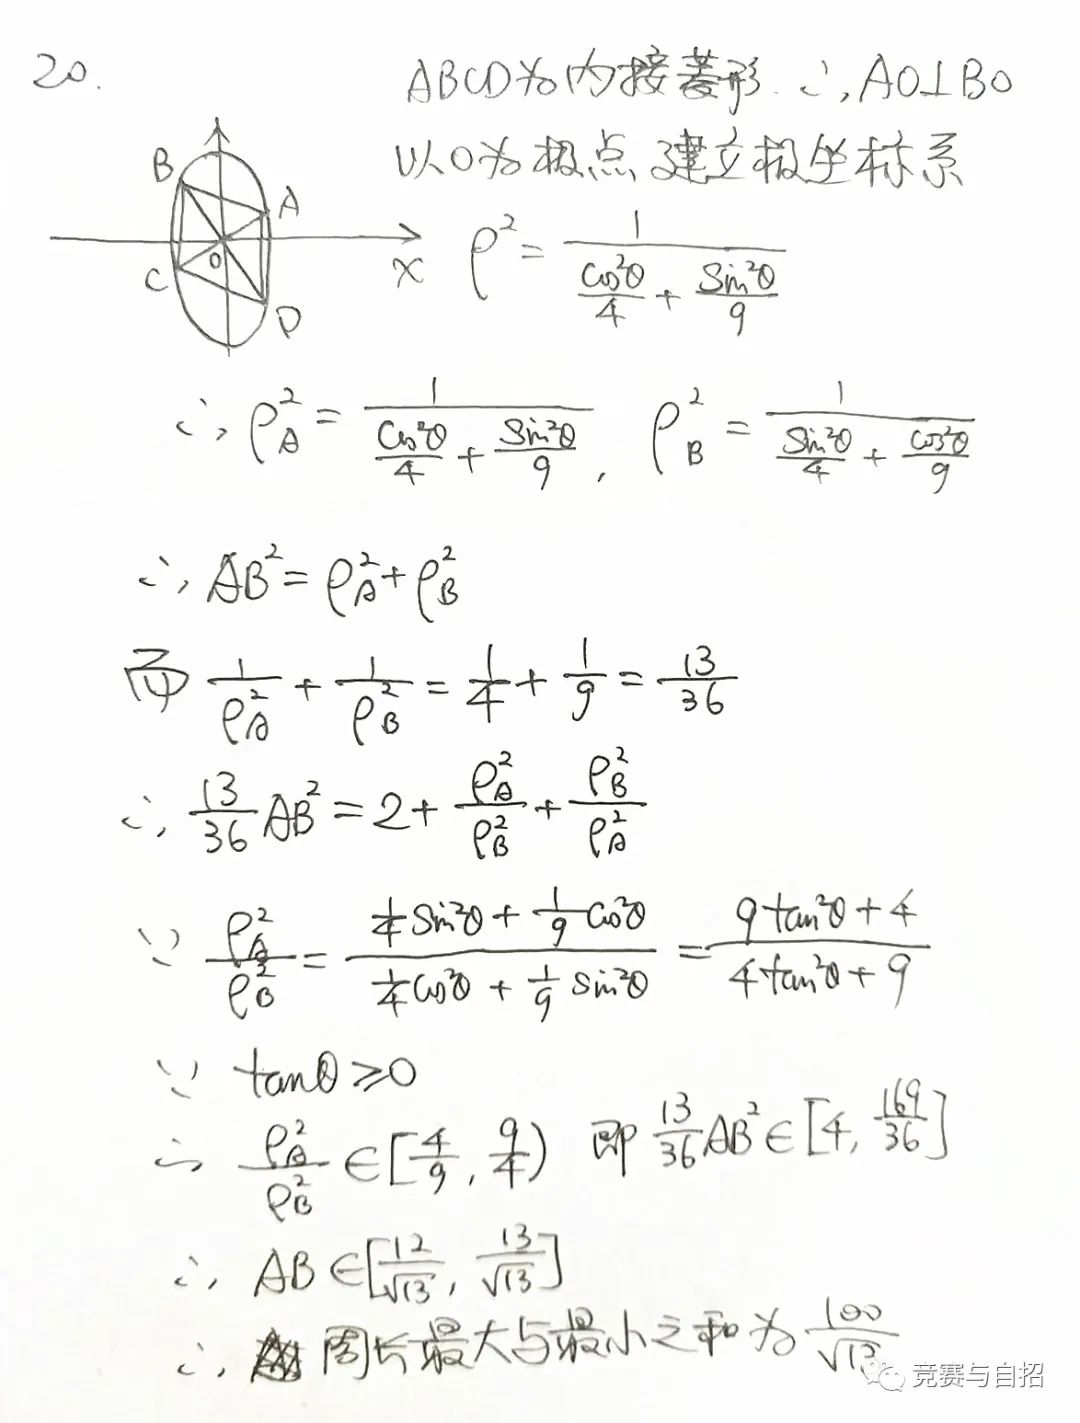 20.
ABCD为内接菱形 ∴ AO⊥BO
以O为极点 建立极坐标系
B
A
C
O
D
x
ρ² = 1/(cos²θ/4 + sin²θ/9)
∴ ρ_A² = 1/(cos²θ/4 + sin²θ/9), ρ_B² = 1/(sin²θ/4 + cos²θ/9)
∴ AB² = ρ_A² + ρ_B²
而 1/ρ_A² + 1/ρ_B² = 1/4 + 1/9 = 13/36
∴ 13/36 AB² = 2 + ρ_A²/ρ_B² + ρ_B²/ρ_A²
∵ ρ_A²/ρ_B² = (1/4 sin²θ + 1/9 cos²θ)/(1/4 cos²θ + 1/9 sin²θ) = (9tan²θ + 4)/(4tan²θ + 9)
∵ tanθ ≥ 0
∴ ρ_A²/ρ_B² ∈ [4/9, 9/4) 即 13/36 AB² ∈ [4, 169/36]
∴ AB ∈ [12/√13, 13/√13]
∴ 周长最大与最小之和为 100/√13
竞赛与自招